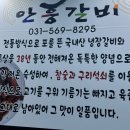 안흥갈비
031-569-8295
전통방식으로 포를 뜬 국내산 냉장갈비와
38년 동안 전해져온 독특한 양념으로
참숯과 구리석쇠를 이
고기를 구워 기름기는 빠지고
남아있어 그 맛이 일품입니다.